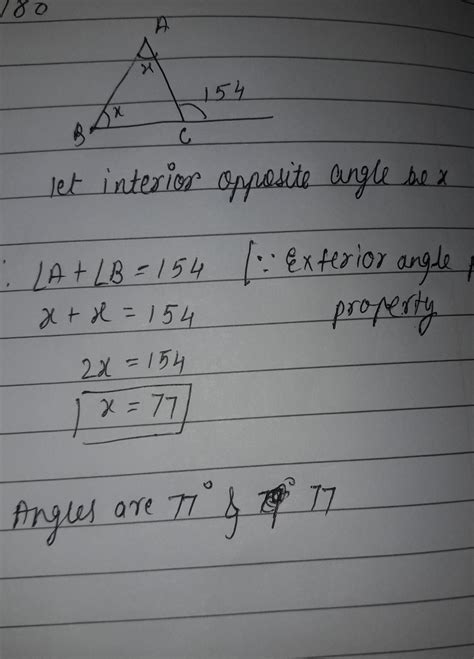 180
A
x
x
154
B
C
let interior opposite angle be x
∴ ∠A + ∠B = 154 [∵ Exterior angle
property
x + x = 154
2x = 154
x = 77
Angles are 77° & 77